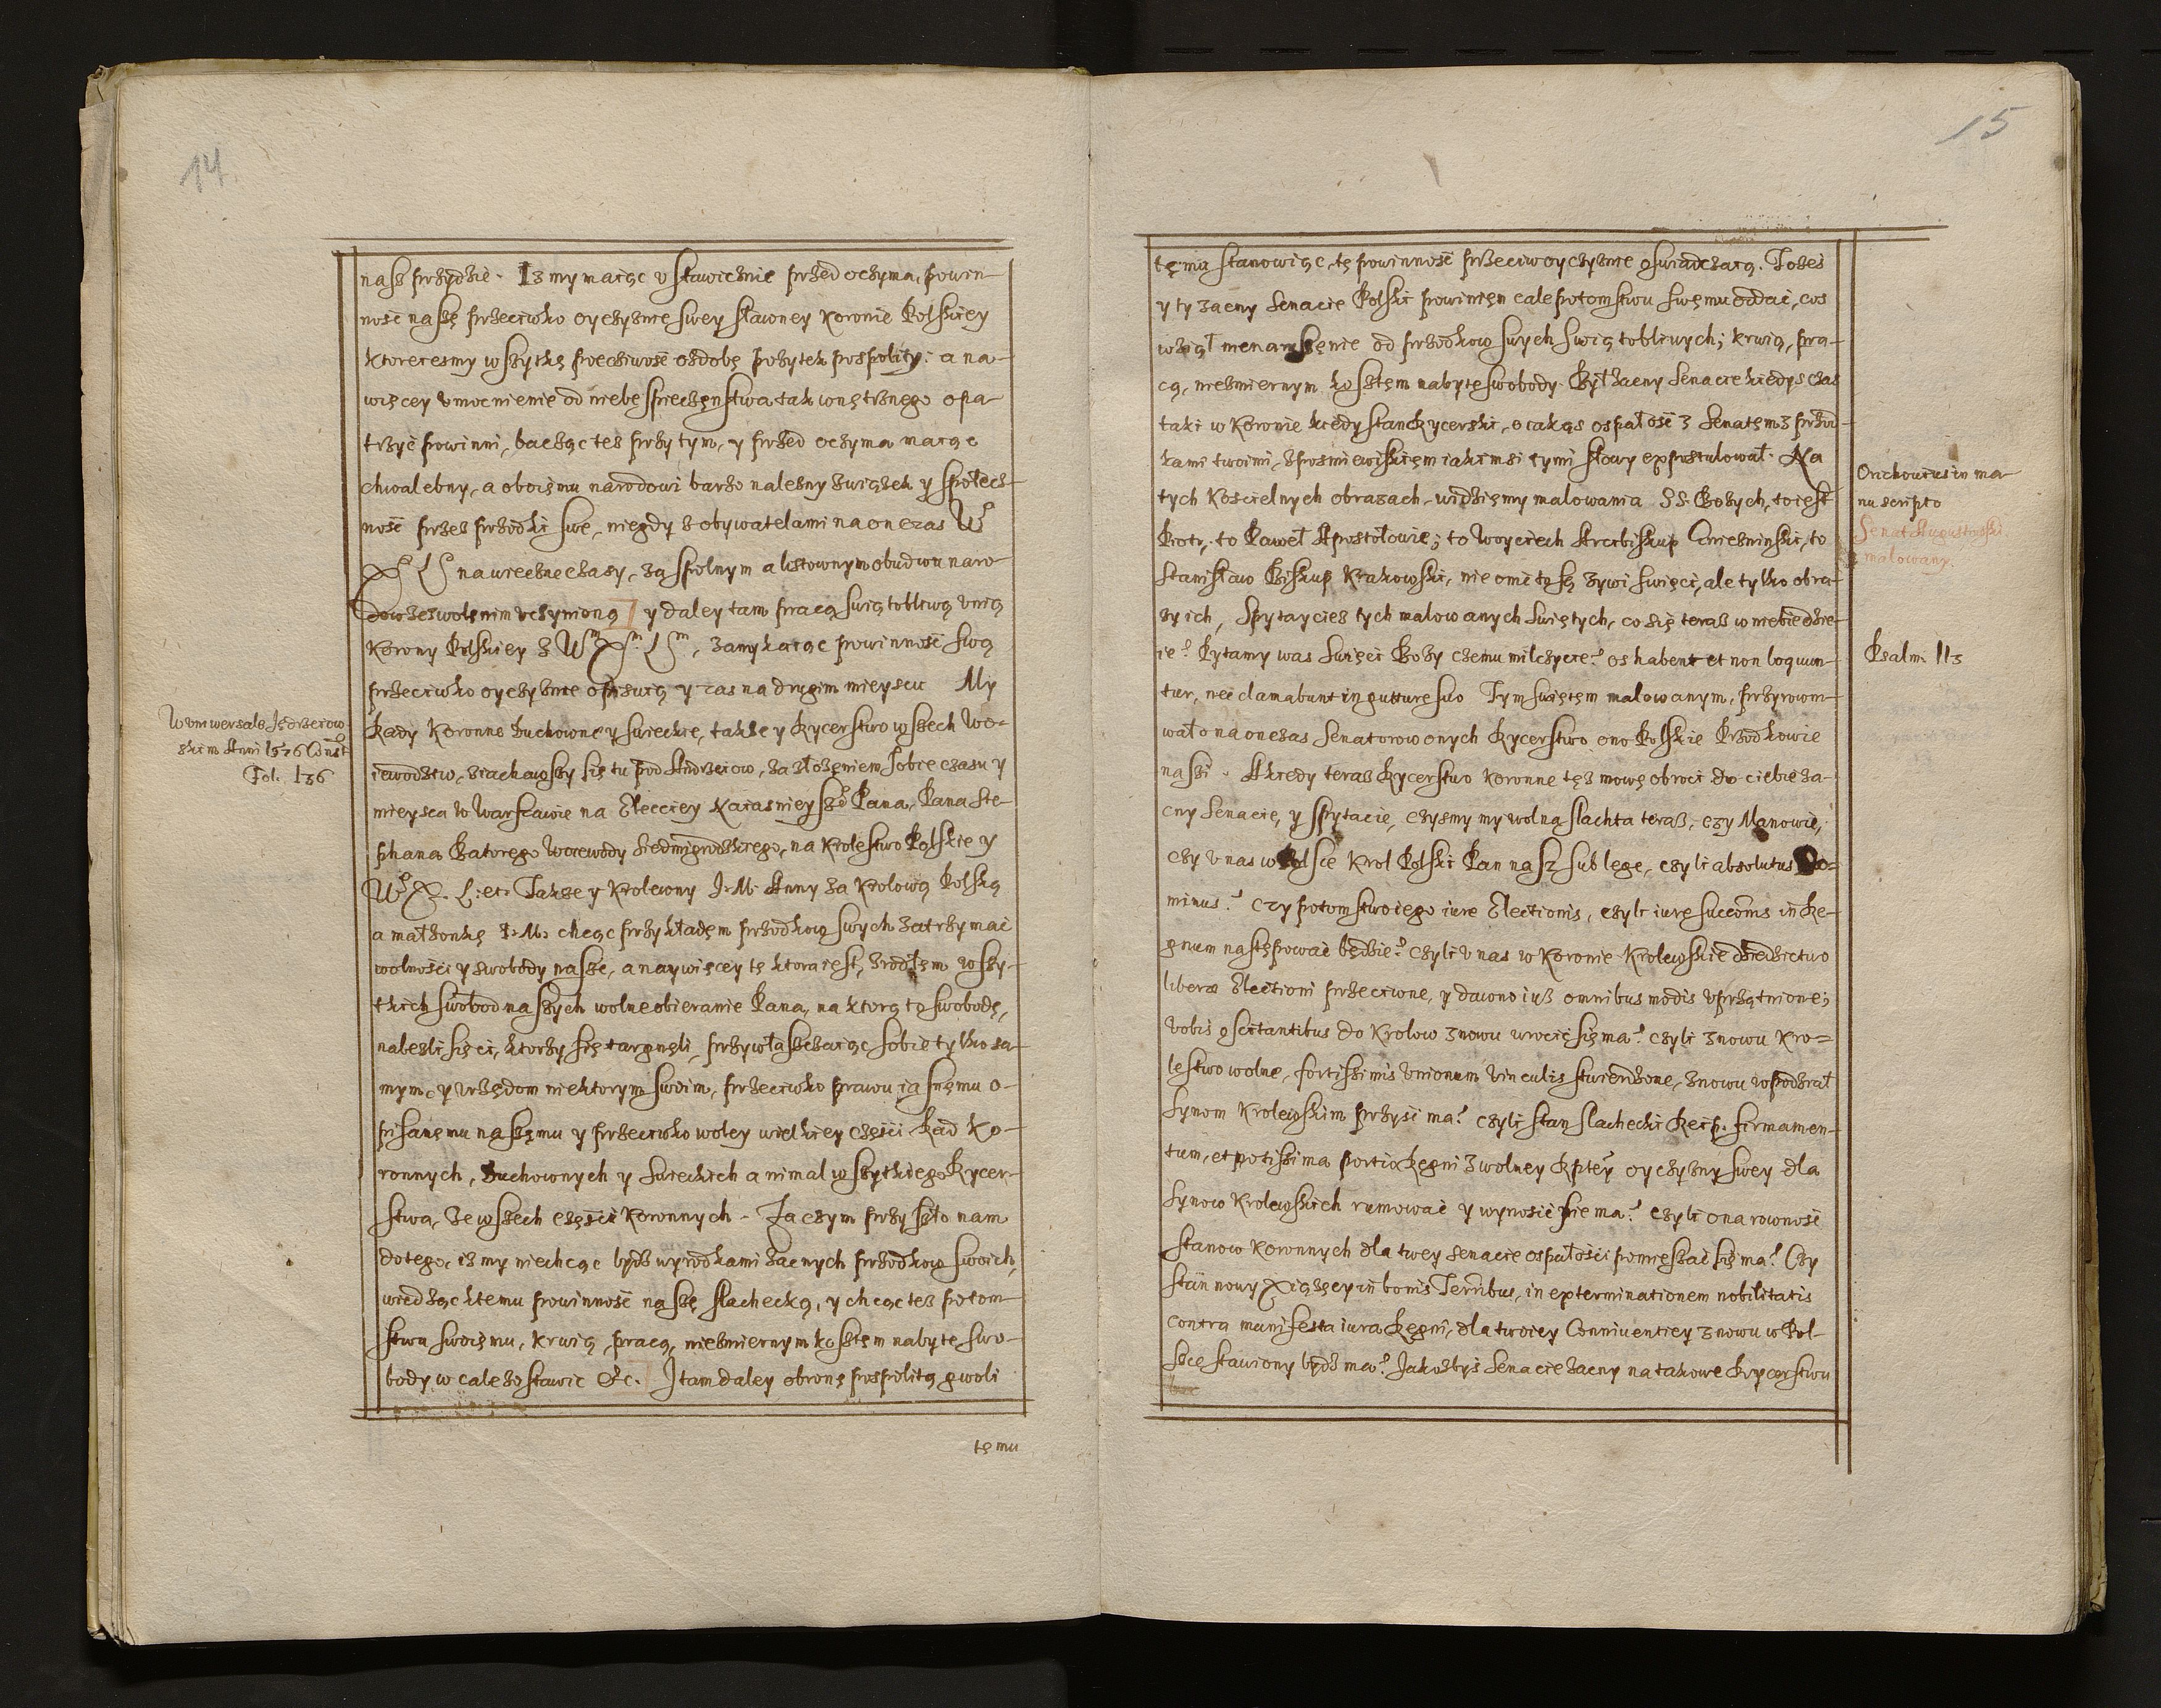 14.
nasz przydzie. Iz my maiąc vstawicznie przed oczyma, powin-
nosć naszę przeciwko oyczyznie swey sławney Koronie Polskiey
ktoreiesmy wszytkę poczciwosć ozdobę pozytek pospolity: a na-
więcey vmocnienie od niebespieczęnstwa tak wnętrznego opa-
trzyć powinni, bacząc tez przy tym, y przed oczyma maiąc
chwalebny, a oboięmu narodowi barzo nalezny związek y społecz-
nosć przez przodki swe, niegdy z obywatelami na on czas Wo
X L na wieczne czasy, za spolnym a listownym obudwu naro-
dow zezwolęnim vczynioną y daley tam pracą swiątobliwą vnią
Korony Polskiey z Wm X. Lm, zamykaiąc powinnosć swą
przeciwko oyczyznie opisuią y zas na drugim mieyscu My
Rady Koronne Duchowne y swieckie, takze y Rycerstwo wszech Wo-
iewodztw, ziachawszy się tu pod Andrzeiow, za złozęniem sobie czasu y
mieysca w Warszawie na Elekciey Naiasnieyszo Pana, Pana Ste-
phana Batorego Woiewody Siedmigrodzkiego, na Krolestwo Polskie y
Wo X. L: etc. Takze y Krolewny J. M. Anny za Krolową Polską
a małzonkę J. M. chcąc przykładęm przodkow swych zatrzymać
wolnosci y swobody nasze, a naywięcey tę ktora iest, zrodłęm wszy-
tkich swobod naszych wolne obieranie Pana, na ktorą tę swobodę,
nalezli się ci, ktorzy się targnęli, przywłaszczaiąc sobie tylko sa-
mym, y vrzędom niektorym swoim, przeciwko prawu iasnęmu o-
pisanęmu naszęmu y przeciwko woley wielkiey części Rad Ko-
ronnych, Duchownych y Swieckich a nimal wszytkiego Rycer-
stwa, ze wszech części Koronnych. Zaczym przyszło nam
do tego, iz my niechcąc bydz wyrodkami zacnych przodkow swoich,
wiedząc ktemu powinnosć naszę slachecką, y chcąc tez potom-
stwu swoięmu, krwią, pracą, niezmiernym kosztęm nabyte swo-
body w cale zostawic &c. J tam daley obronę pospolitą gwoli
tęmu
W vniwersale Jędrzeiow-
skim Anni 1576 Const
Fol. 136
15
tęmu stanowiąc, tę powinnosć przeciw oyczyznie oswiadczaią. Tozes
y ty zacny Senacie Polski powinięn cale potomstwu swęmu oddać, cos
wziął nienaruszęnie od przodkow swych swiątobliwych; krwią, pra-
cą, niezmiernym kosztęm nabyte swobody. Był zacny Senacie kiedys czas
taki w Koronie kiedy stan Rycerski, o iakąs ospałosć z Senatęm z przod-
kami twoimi, z posmiewiskięm iakimsi tymi słowy expostulował. Na
tych Koscielnych obrazach widzięmy malowania SS. Bozych, to iest
Piotr, to Paweł Apostołowie; to Woyciech Arcibiskup Gniezninski, to
Stanisław Biskup Krakowski, nie omi to są zywi swięci, ale tylko obra-
zy ich, Spytaycież tych malowanych Swiętych, co się teraz w niebie dzie-
ie? Pytamy was Swięci Bozy czemu milczycie? os habent et non loquun-
tur, nec clamabunt in gutture suo Tym swiętęm malowanym, przyrown-
wało na on czas Senatorow onych Rycerstwo ono Polskie Przodkowie
naszi. A kiedy teraz Rycerstwo Koronne tęz mowę obroci do ciebie za-
cny Senacie, y spytacie, czysmy my wolna slachta teraz, czy Manowie,
czy v nas w Polsce Krol Polski Pan nasz sub lege, czyli absolutus Do-
minus? czy potomstwo iego iure Electionis, czyli iure succoms in Re-
gnum nastepowac będzie? czyli v nas w Koronie Krolewskie dziedzictwo
liberæ Electioni przeciwne, y dawno iuż omnibus modis vprzątnione;
vobis oscitantibus do Krolow znowu wrocić się ma? czyli znowu Kro-
lestwo wolne, fortissimis vnionum vinculis stwierdzone, znowu w podział
Synom Krolewskim przysć ma? czyli stan slachecki Reip. firmamen-
tum, et potissima portio Regni z wolney Rptey oyczyzny swey dla
synow Krolewskich rumowac y wynosic sie ma? czyli ona rownosć
stanow Koronnych dla twey Senacie ospałości pomieszać się ma? Czy
stan nowy Xiążęcy in bonis Terribus, in exterminationem nobilitatis
contra manifesta iura Regni, dla twoiey Conniventiey znowu w Pol-
szce stawiony bydz ma? Jakozbys Senacie zacny na takowe Rycerstwu
Orichovius in ma-
nuscripto
Senat Augustowski
malowany.
Psalm. 113